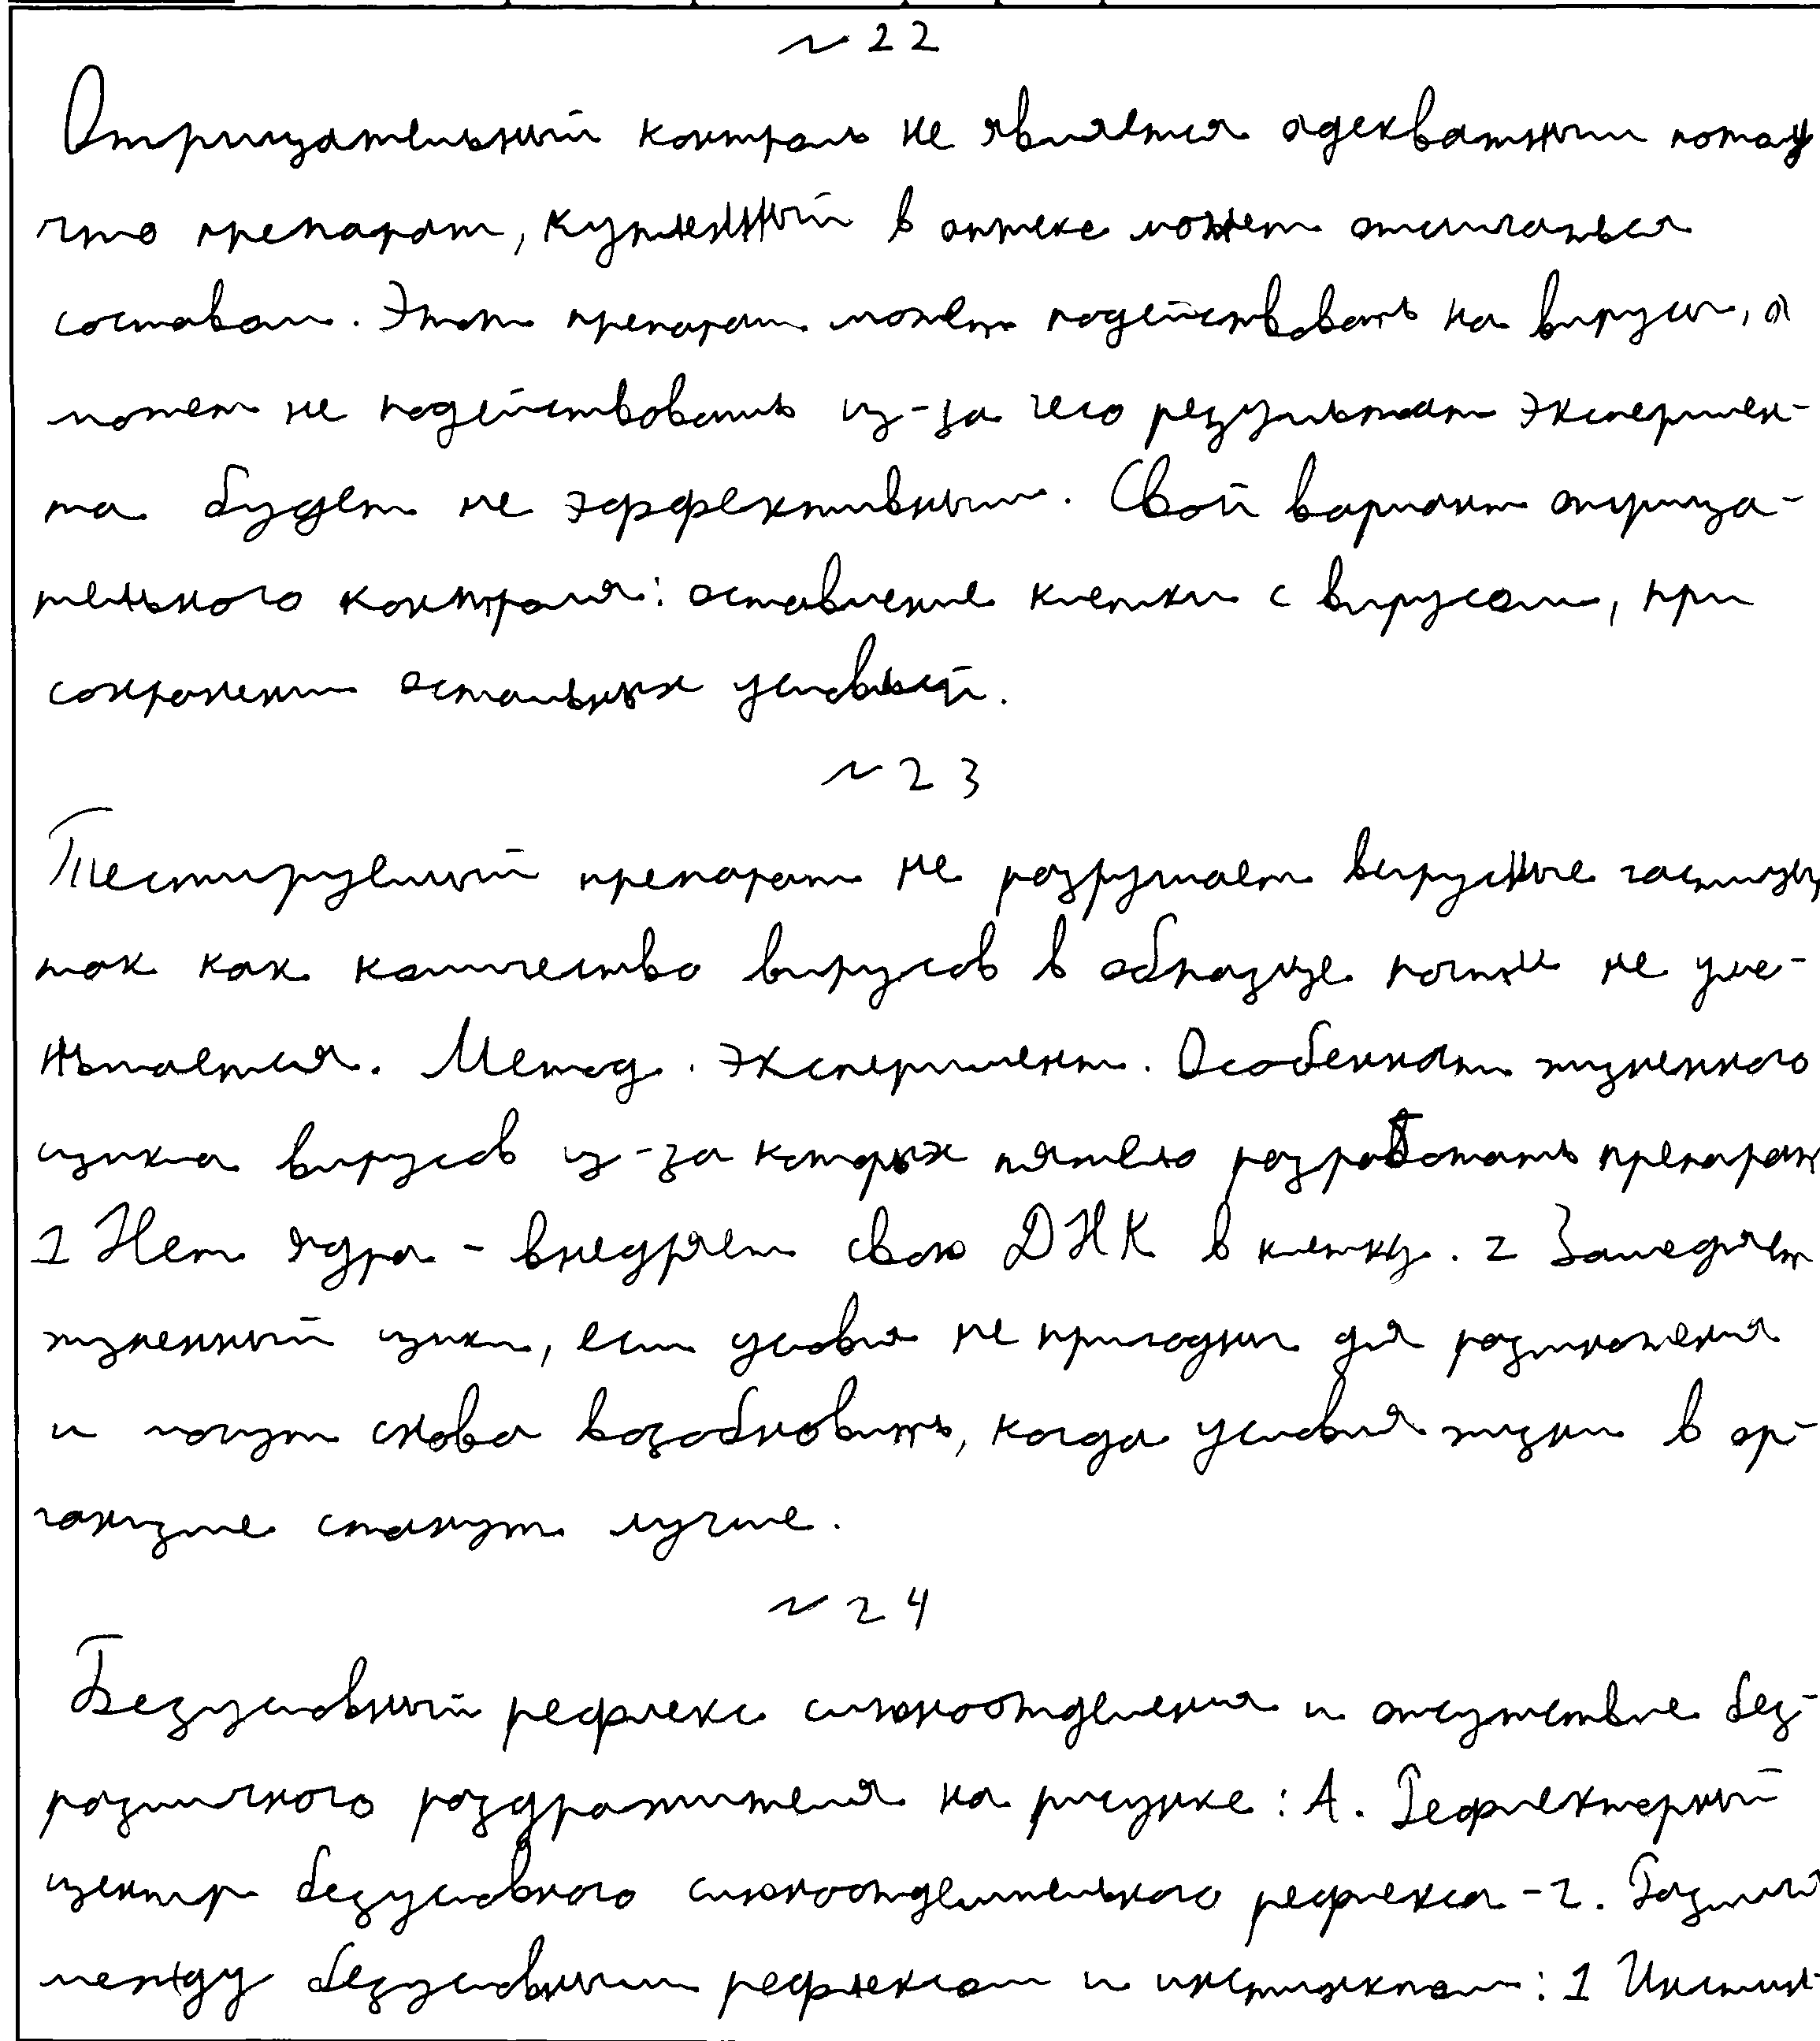 ~ 22
Отрицательный контроль не является адекватным потому
что препарат, купленный в аптеке может отличаться
составом. Этот препарат может подействовать на вирусы, а
может не подействовать из-за чего результат эксперимен-
та будет не эффективным. Свой вариант отрица-
тельного контроля: оставление клетки с вирусом, при
сохранении остальных условий.
~ 23
Тестируемый препарат не разрушает вирусные частицы,
так как количество вирусов в образце почти не уме-
ньшается. Метод. Эксперимент. Особенности жизненного
цикла вирусов из-за которых тяжело разработать препарат
1 Нет ядра - внедряет свою ДНК в клетку. 2 Замедляет
жизненный цикл, если условия не пригодны для размножения
и могут снова возобновить, когда условия жизни в ор-
ганизме станут лучше.
~ 24
Безусловный рефлекс слюноотделения и отсутствие без-
различного раздражителя на рисунке: А. Рефлекторный
центр безусловного слюноотделительного рефлекса - 2. Различия
между безусловным рефлексом и инстинктом: 1 Инстин-